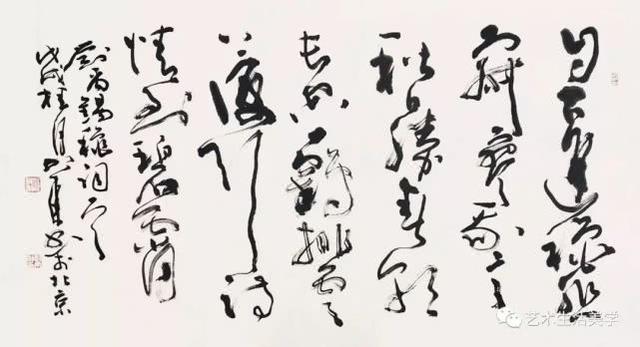 自古逢秋悲
寂寥我言
秋日胜春朝
长空一鹤排云
上便引诗
情到碧霄
刘禹锡秋词之一
戊戌桂月 书于北京
艺术生活美学